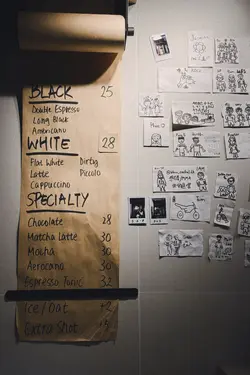 BLACK 25
Double Espresso
Long Black
Americano
WHITE 28
Flat White Dirty
Latte Piccolo
Cappuccino
SPECIALTY
Chocolate 28
Matcha Latte 30
Mocha 30
Aerocano 30
Espresso Tonic 32
Ice/Oat +2
Extra Shot